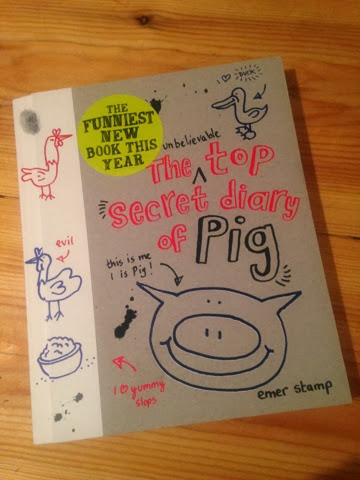 I ♡ DUCK
THE
FUNNIEST
NEW
BOOK THIS
YEAR
unbelievable
The ^ top
secret diary
of Pig
evil
this is me
I is Pig!
I ♡ yummy
slops
emer stamp